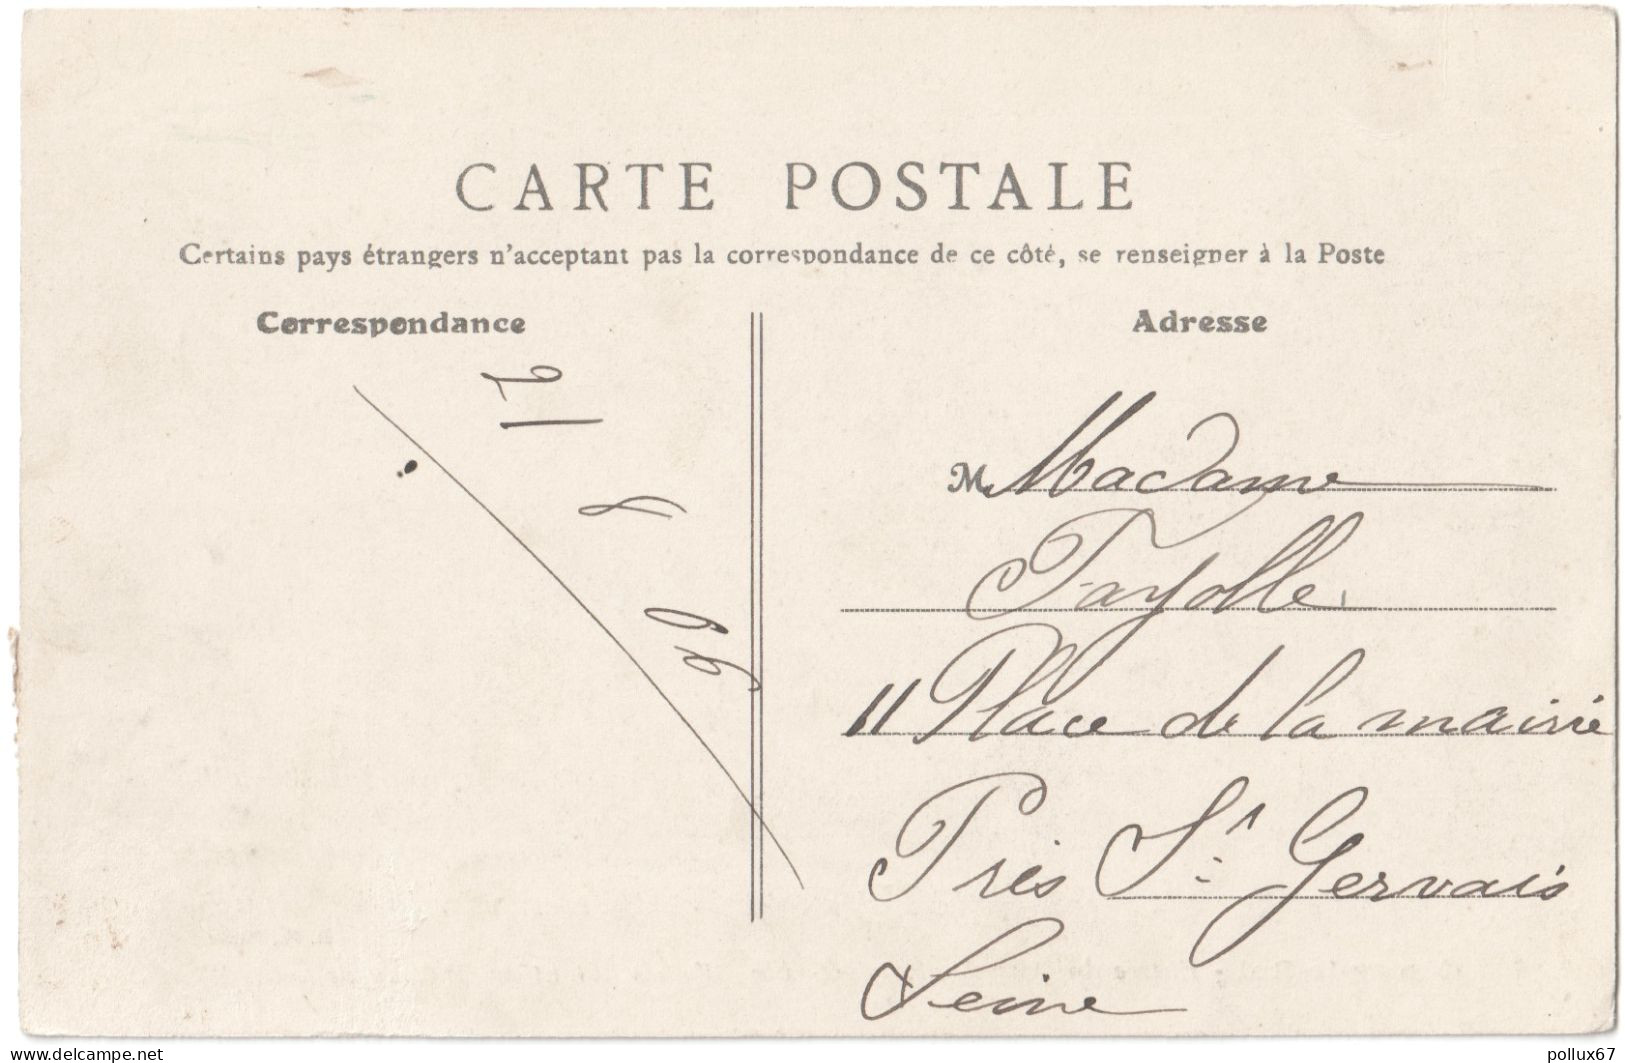 CARTE POSTALE
Certains pays étrangers n'acceptant pas la correspondance de ce côté, se renseigner à la Poste
Correspondance
Adresse
21
8
M. Madame
Fayolle
11 Place de la mairie
Près St Gervais
Seine
www.delcampe.net
pollux67